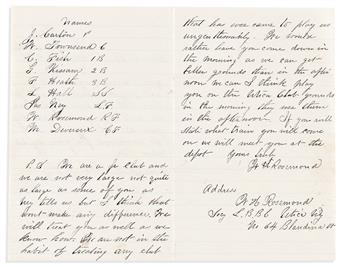 Names
J. Carlin P
W. Townsend C
C. Fish 1B
S. Kissam 2B
F. Heath 3B
L. Hall SS
Jas Ney L.F
W Rosemond R F
M. Devereux C F
P.S. We are a jr club and
we are not very large not quite
as large as some of you as
they tells us but I think that
dont make any difference. We
will treat you as well as we
know how. We are not in the
habit of treating any club
that has ever came to play us
ungentlemanly. We would
rather have you come down in
the morning as we can get
better grounds than in the after
noon we can I think play
you on the Utica Club grounds
in the morning they use them
in the afternoon. If you will
state what train you will come
on we will meet you at the
depot Yours truly
W H Rosemond
Address
W. H. Rosemond
Secy L.B.B.C Utica City
No 64 Blandina St